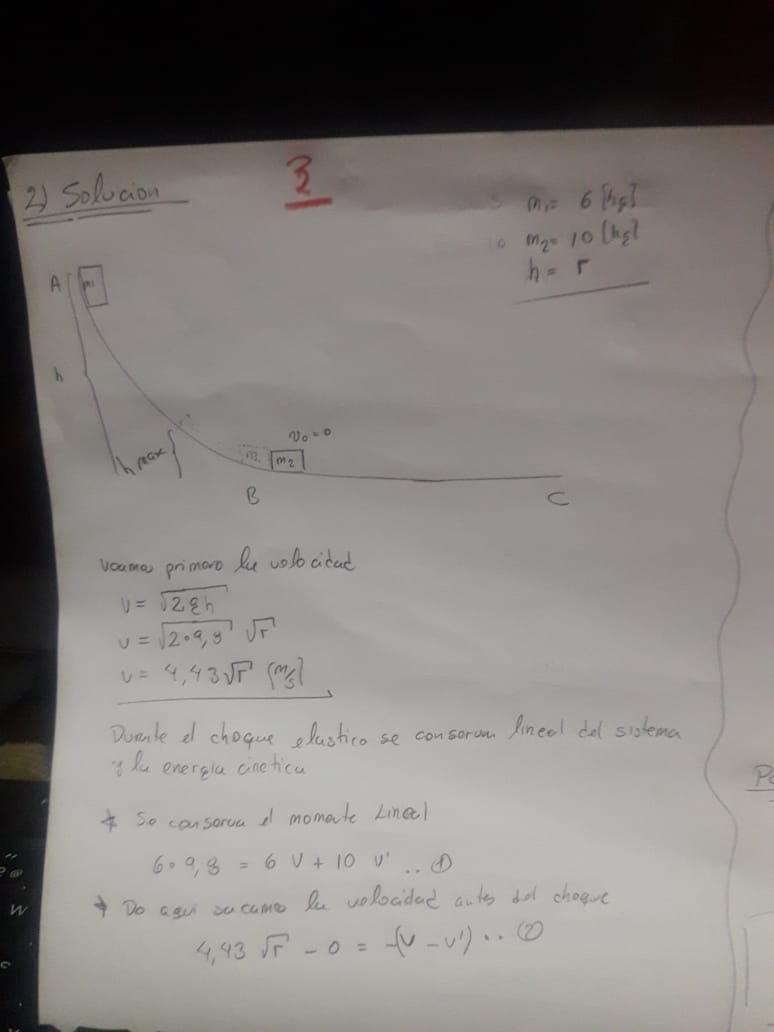 2) Solucion
3
m₁= 6 [kg]
m₂= 10 [kg]
h = r
A
m₁
h
h max
v₀=0
m₂
B
C
Veamos primero la velocidad
v = √2gh
v = √2•9,8 √r
v = 4,43√r [m/s]
Durante el choque elastico se conservan lineal del sistema
y la energia cinetica
* Se conserva el momento Lineal
6•9,8 = 6 V + 10 v' .. ①
* De aqui sacamos la velocidad antes del choque
4,43 √r - 0 = -(v - v') .. ②